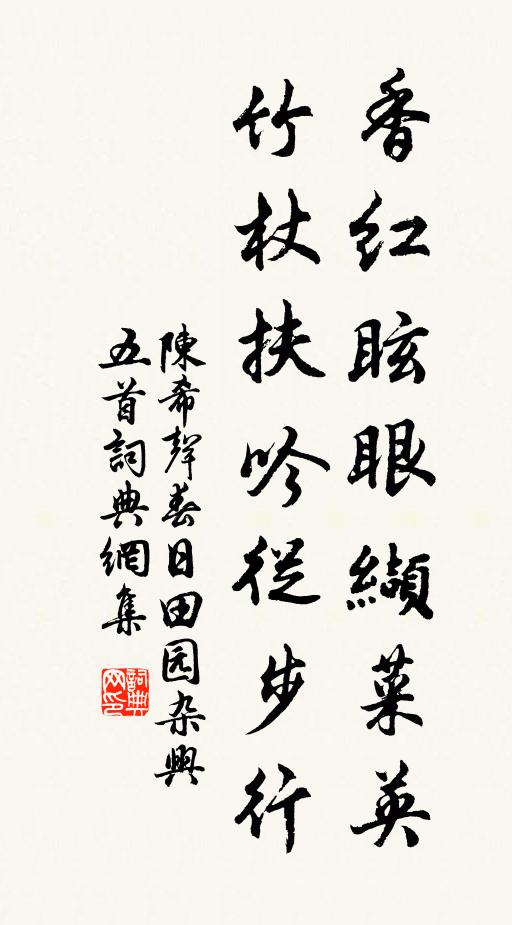 香红眩眼纈菜英
竹杖扶吟從步行
陳希聲春日田园杂興
五首詞典網集
詞典网印